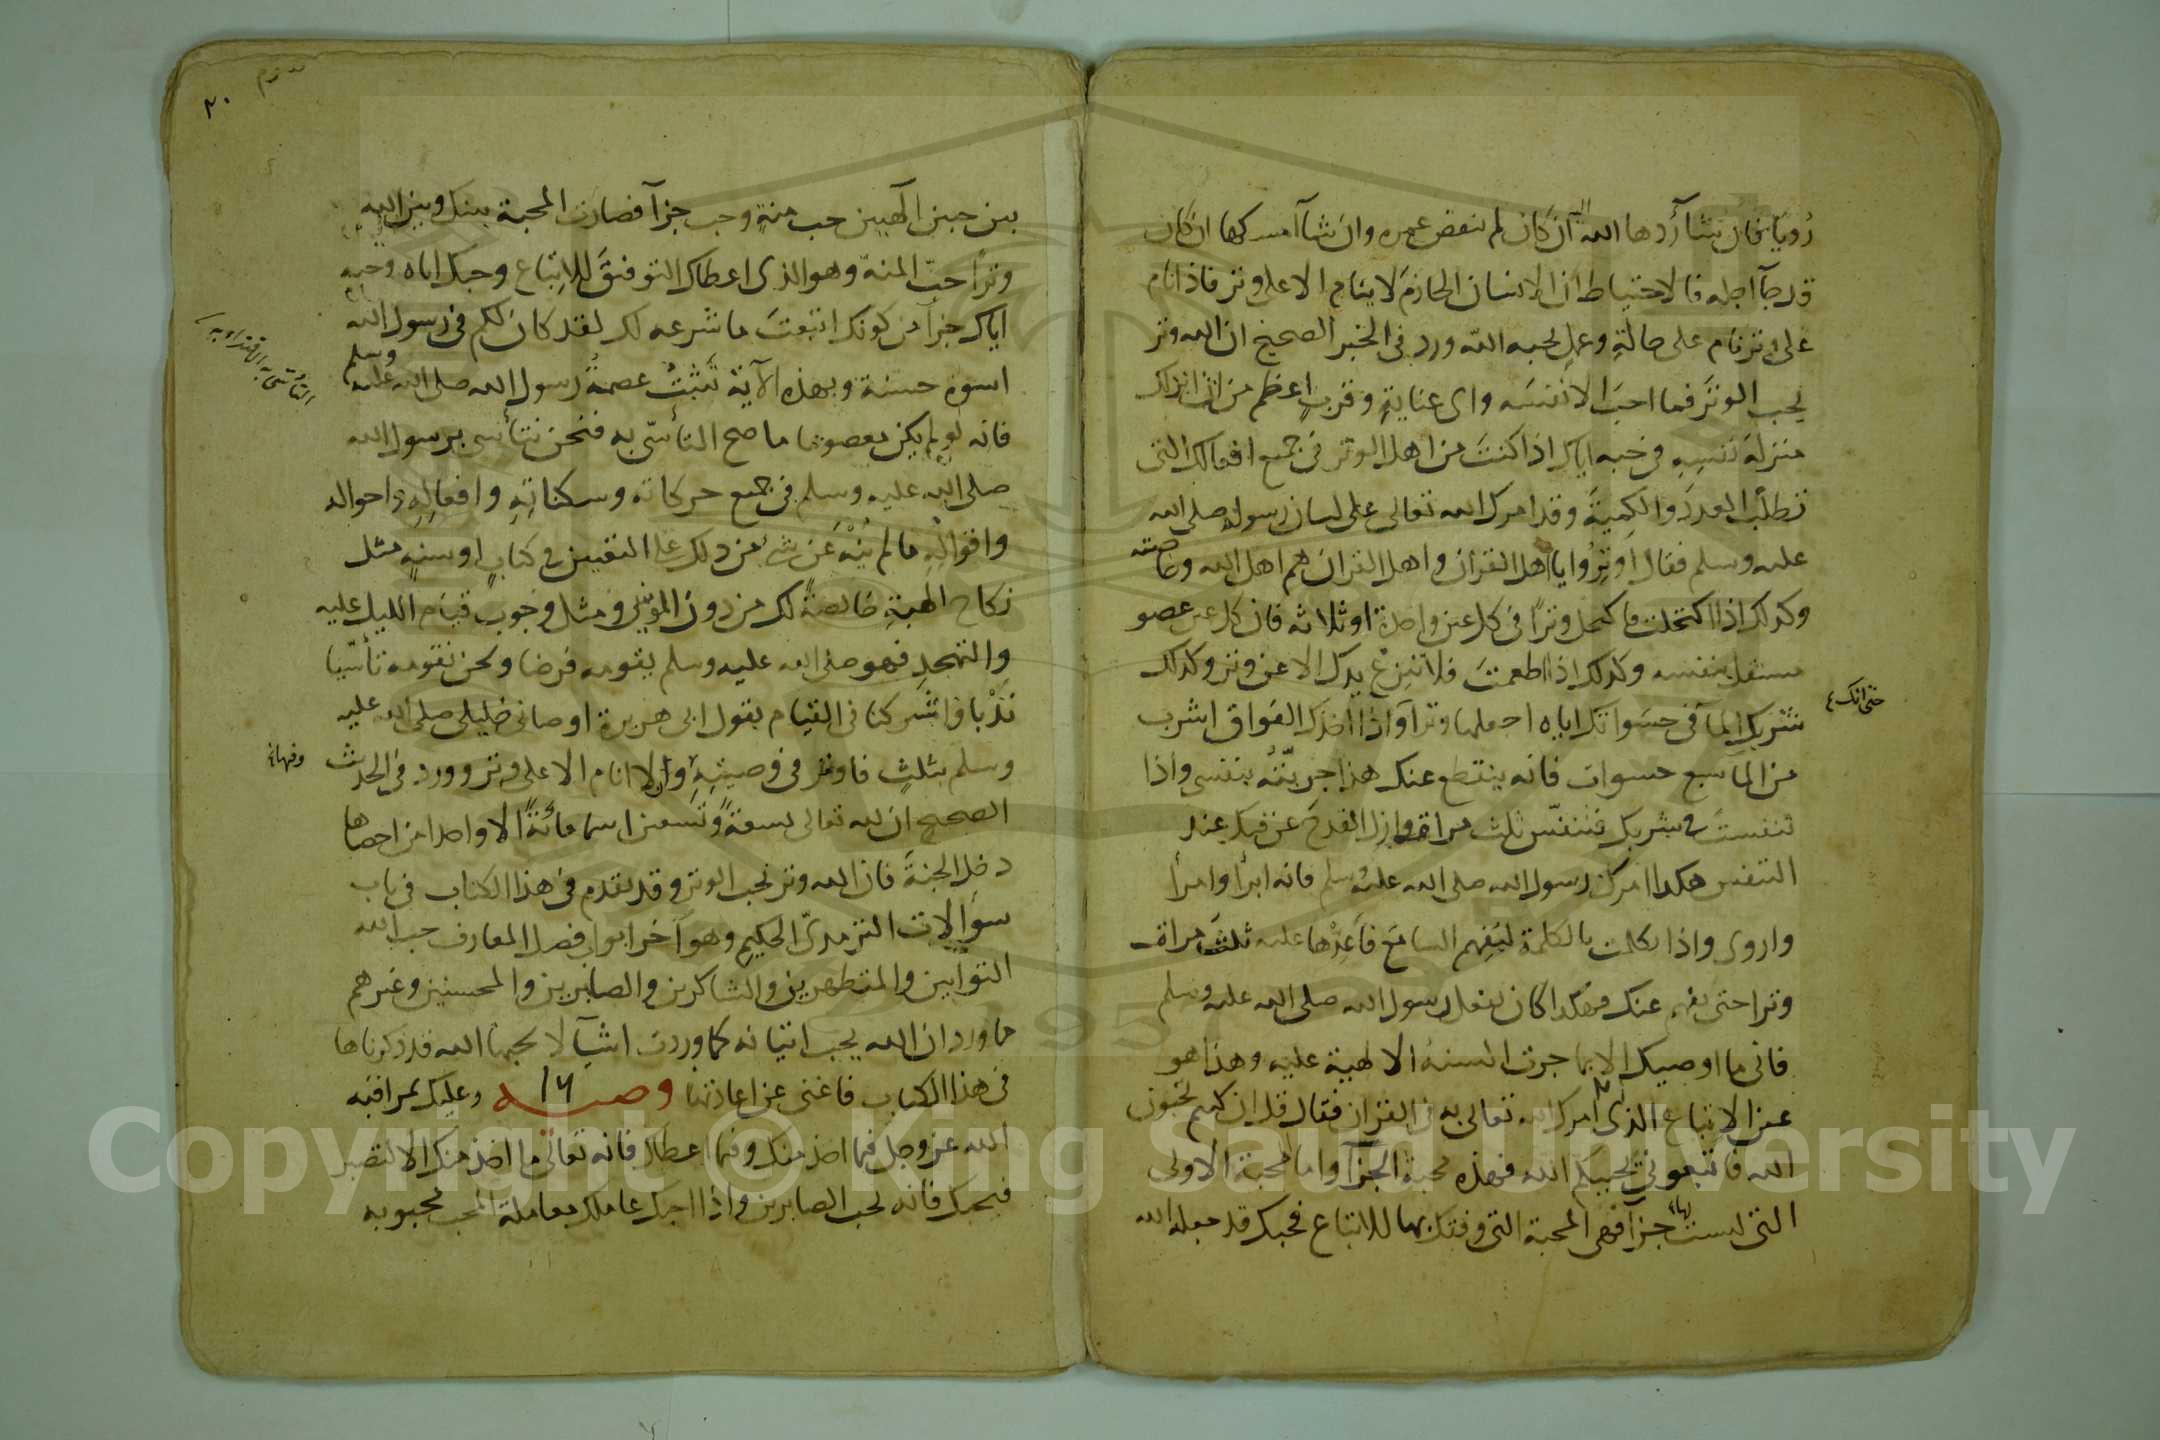 رؤيا فان شآء ردها الله ان كان لم ينقض عمره وان شآ امسكها ان كان
قد جآ اجله فالاحتياط ان الانسان الحازم لا ينام الا على وتر فاذا نام
على وتر نام على حالة وعمل يحبه الله ورد في الخبر الصحيح ان الله وتر
يحب الوتر فما احب الا نفسه واى عناية وقرب اعظم من ان انزلك
منزلة نفسه في حبه اياك اذا كنت من اهل الوتر في جميع افعالك التى
تطلب العدد والكمية وقد امرك الله تعالى على لسان رسوله صلى الله
عليه وسلم فقال اوتروا يا اهل القران واهل القران هم اهل الله وخاصته
وكذلك اذا اكتحلت فاكتحل وترا في كل عين واحدة او ثلاثه فان كل عين عضو
مستقل بنفسه وكذلك اذا طعمت فلا تنزع يدك الا عن وتر وكذلك
حتى انك
شربك المآ في حسواتك اياه اجعلها وترا واذا اخذك الفواق اشرب
من المآ سبع حسوات فانه ينقطع عنك هذا جربته بنفسى واذا
تنفست في شربك فتنفس ثلث مرات وازل القدح عن فيك عند
التنفس هكذا امرك رسول الله صلى الله عليه وسلم فانه ابرأ وامرأ
واروى واذا تكلمت بالكلمة ليفهم السامع فاعدها عليه ثلث مرات
وترا حتى يفهم عنك فهكذا كان يفعل رسول الله صلى الله عليه وسلم
فانى ما اوصيك الا بما جرت السنة الالهية عليه وهذا هو
عين الاتباع الذى امرك الله تعالى به في القران فقال قل ان كنتم تحبون
الله فاتبعوني يحببكم الله فهذه محبة الجزآ واما محبة الاولى
التى ليست جزآ فهى المحبة التى وفقك بها للاتباع فحبك قد جعله الله
٢٠
بين حبين الهيين حب منة وحب جزآ فصارت المحبة بينك وبين الله
وترا حب المنة وهو الذى اعطاك التوفيق للاتباع وحبك اياه وحبه
اياك جزآ من كونك اتبعت ما شرعه لك لقد كان لكم في رسول الله
اسوة حسنة وبهذه الآية ثبتت عصمة رسول الله صلى الله عليه وسلم
فانه لو لم يكن معصوما ما صح التأسى به فنحن نتأسى برسول الله
صلى الله عليه وسلم في جميع حركاته وسكناته وافعاله واحواله
واقواله ما لم ينه عن شئ من ذلك على التعيين في كتاب او سنة مثل
نكاح الهبة خالصة لك من دون المؤمنين ومثل وجوب قيام الليل عليه
والتهجد فهو صلى الله عليه وسلم يقومه فرضا ونحن نقومه تأسيا
ندبا فاشتركنا في القيام يقول ابى هريرة اوصانى خليلى صلى الله عليه
وسلم بثلث فاوتر في وصيته وان لا انام الا على وتر وورد في الحديث
وفيها
الصحيح ان لله تعالى تسعة وتسعين اسما مائة الا واحدا من احصاها
دخل الجنة فان الله وتر يحب الوتر وقد تقدم في هذا الكتاب في باب
سؤالات الترمذى الحكيم وهو آخر ابواب فصل المعارف حب الله
التوابين والمتطهرين والشاكرين والصابرين والمحسنين وغيرهم
مما ورد ان الله يحب اتيانه كما وردت اشيآ لا يحبها الله قد ذكرناها
في هذا الكتاب فاغنى عن اعادتها وصيه ١٦ وعليك بمراقبة
الله عز وجل فيما اخذ منك وفيما اعطاك فانه تعالى ما اخذ منك الا لتصبر
فيحبك فانه يحب الصابرين واذا احبك عاملك معاملة المحب محبوبه
Copyright © King Saud University
1957